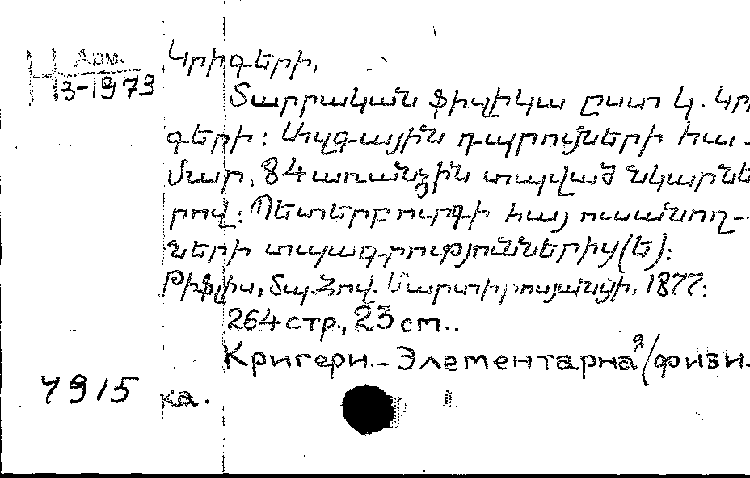 Арм.
Н 3-1973
Կրիգերի,
Տարրական ֆիզիկա ըստ Կ. Կր
գերի: Ազգային դպրոցների հա-
մար, 84 առանձին տպված նկարնե
րով: Պետերբուրգի հայ ուսանող-
ների տպագրություններից (ե):
Թիֆլիս, տպ. Հով. Մարտիրոսյանցի, 1877:
264 стр., 23 см..
Кригери. - Элементарная (физи-
7915 ка.